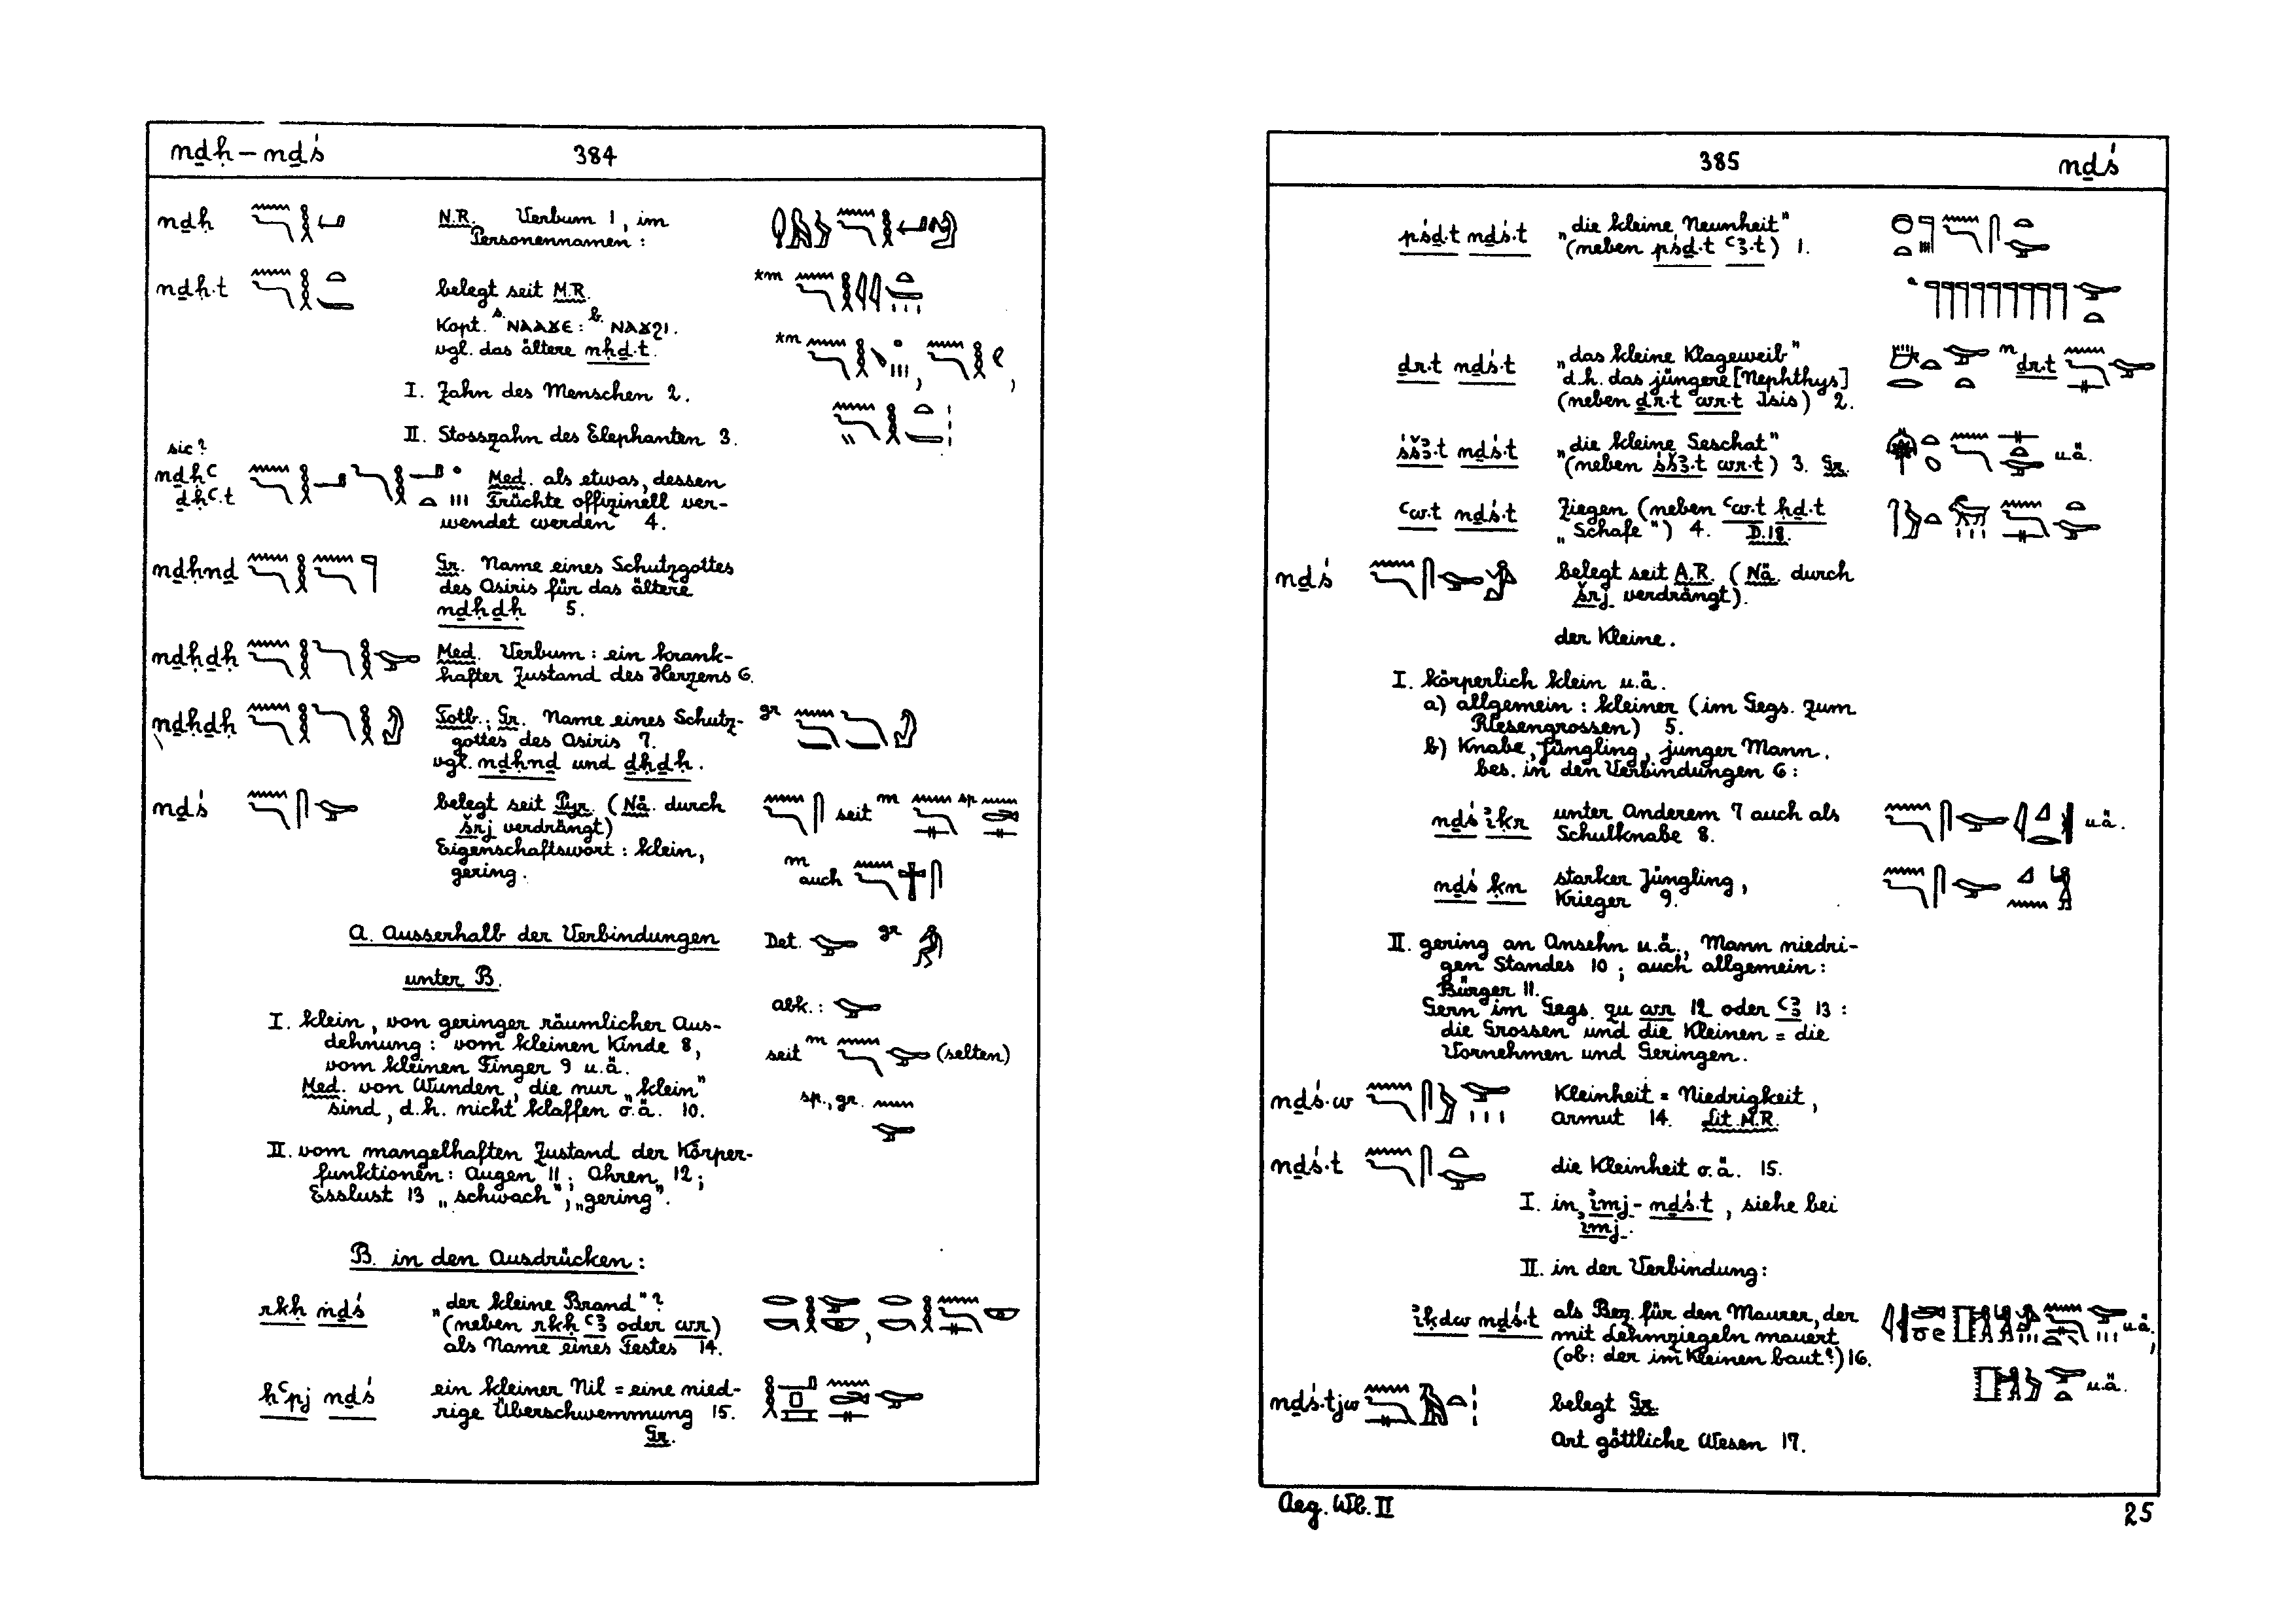 nḏḥ – nḏś 384
nḏḥ N.R. Verbum 1, im
Personennamen:
nḏḥ·t belegt seit M.R. *m
Kopt. s. ⲚⲀⲀϪⲈ: b. ⲚⲀϪϨⲒ.
vgl. das ältere nḥḏ·t. *m
I. Zahn des Menschen 2.
II. Stosszahn des Elephanten 3.
sic?
nḏḥꜥ Med. als etwas, dessen
ḏḥꜥ·t Früchte offizinell ver-
wendet werden 4.
nḏḥnḏ Gr. Name eines Schutzgottes
des Osiris für das ältere
nḏḥḏḥ 5.
nḏḥḏḥ Med. Verbum: ein krank-
hafter Zustand des Herzens 6.
nḏḥḏḥ Totb.; Gr. Name eines Schutz- gr
gottes des Osiris 7.
vgl. nḏḥnḏ und ḏḥḏḥ.
nḏś belegt seit Pyr. (Nä. durch seit m sp
šrj verdrängt)
Eigenschaftswort: klein, m
gering. auch
A. Ausserhalb der Verbindungen Det. gr
unter B.
abk.:
I. klein, von geringer räumlicher Aus-
dehnung: vom kleinen Kinde 8, seit m (selten)
vom kleinen Finger 9 u.ä.
Med. von Wunden, die nur „klein" sp., gr.
sind, d.h. nicht klaffen o.ä. 10.
II. vom mangelhaften Zustand der Körper-
funktionen: Augen 11; Ohren 12;
Esslust 13 „schwach"; „gering".
B. in den Ausdrücken:
rkḥ nḏś „der kleine Brand"?
(neben rkḥ ꜥꜣ oder wr) ,
als Name eines Festes 14.
ḥꜥpj nḏś ein kleiner Nil = eine nied-
rige Überschwemmung 15.
Gr.
385 nḏś
pśḏ·t nḏś·t „die kleine Neunheit"
(neben pśḏ·t ꜥꜣ·t) 1.
a
ḏr·t nḏś·t „das kleine Klageweib" n ḏr·t
d.h. das jüngere [Nephthys]
(neben ḏr·t wr·t Isis) 2.
śšꜣ·t nḏś·t „die kleine Seschat"
(neben śšꜣ·t wr·t) 3. Gr. u.ä.
ꜥw·t nḏś·t Ziegen (neben ꜥw·t ḥḏ·t
„Schafe") 4. D.18.
nḏś belegt seit A.R. (Nä. durch
šrj verdrängt).
der Kleine.
I. körperlich klein u.ä.
a) allgemein: kleiner (im Gegs. zum
Riesengrossen) 5.
b) Knabe, Jüngling, junger Mann.
bes. in den Verbindungen 6:
nḏś iḳr unter Anderem 7 auch als u.ä.
Schulknabe 8.
nḏś ḳn starker Jüngling,
Krieger 9.
II. gering an Ansehn u.ä., Mann niedri-
gen Standes 10; auch allgemein:
Bürger 11.
Gern im Gegs. zu wr 12 oder ꜥꜣ 13:
die Grossen und die Kleinen = die
Vornehmen und Geringen.
nḏś·w Kleinheit = Niedrigkeit,
Armut 14. Lit. M.R.
nḏś·t die Kleinheit o.ä. 15.
I. in imj-nḏś·t, siehe bei
imj.
II. in der Verbindung:
iḳdw nḏś·t als Bez. für den Maurer, der
mit Lehmziegeln mauert u.ä.,
(ob: der im Kleinen baut?) 16.
u.ä.
nḏś·tjw belegt Gr.
Art göttliche Wesen 17.
Aeg. Wb. II 25